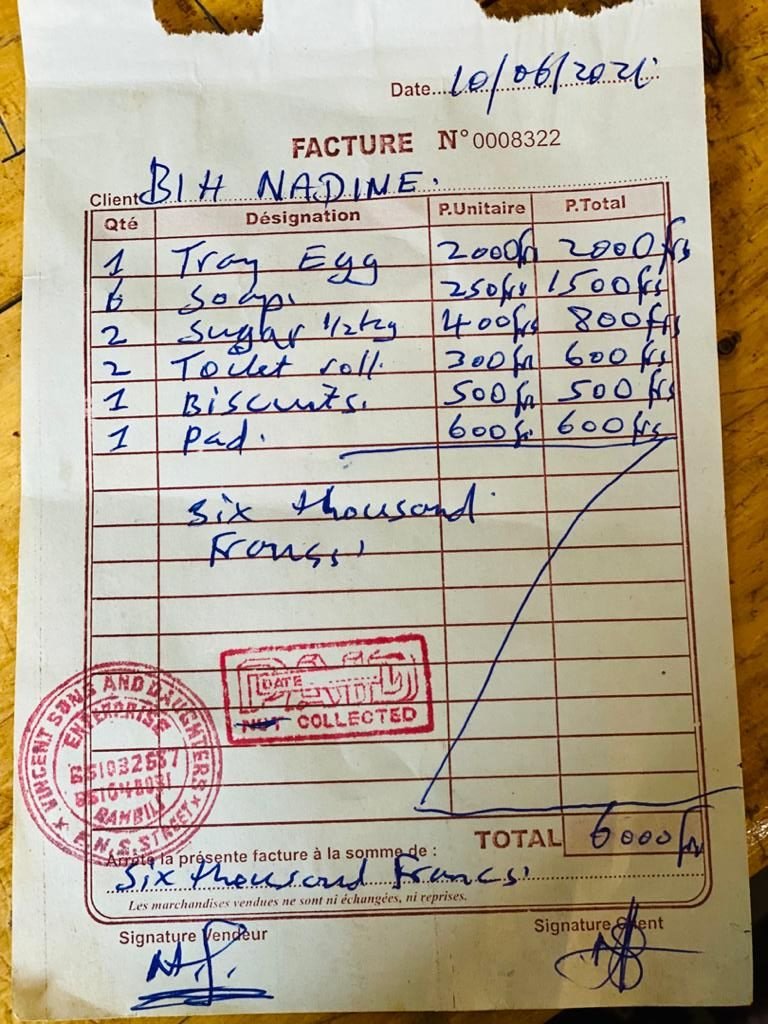 Date 10/06/2021
FACTURE N° 0008322
Client BIH NADINE.
Qté Désignation P.Unitaire P.Total
1 Tray Egg 2000frs 2000frs
6 Soap. 250frs 1500frs
2 Sugar 1/2kg 400frs 800frs
2 Toilet roll. 300frs 600frs
1 Biscuits. 500frs 500frs
1 Pad. 600frs 600frs
six thousand
Francs.
PAID
DATE
NOT COLLECTED
VINCENT SONS AND DAUGHTERS
ENTERPRISE
BAMBILI
E.N.S. STREET
TOTAL 6000frs
Arrêté la présente facture à la somme de :
Six thousand Francs.
Les marchandises vendues ne sont ni échangées, ni reprises.
Signature Vendeur Signature Client